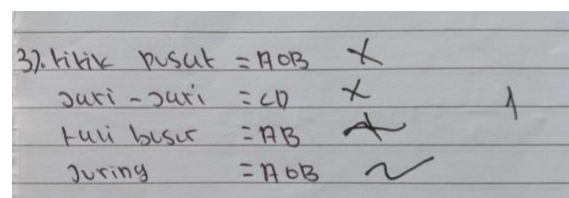 3). titik pusat = AOB X
Jari-Jari = CD X
tali busur = AB
Juring = AOB
1